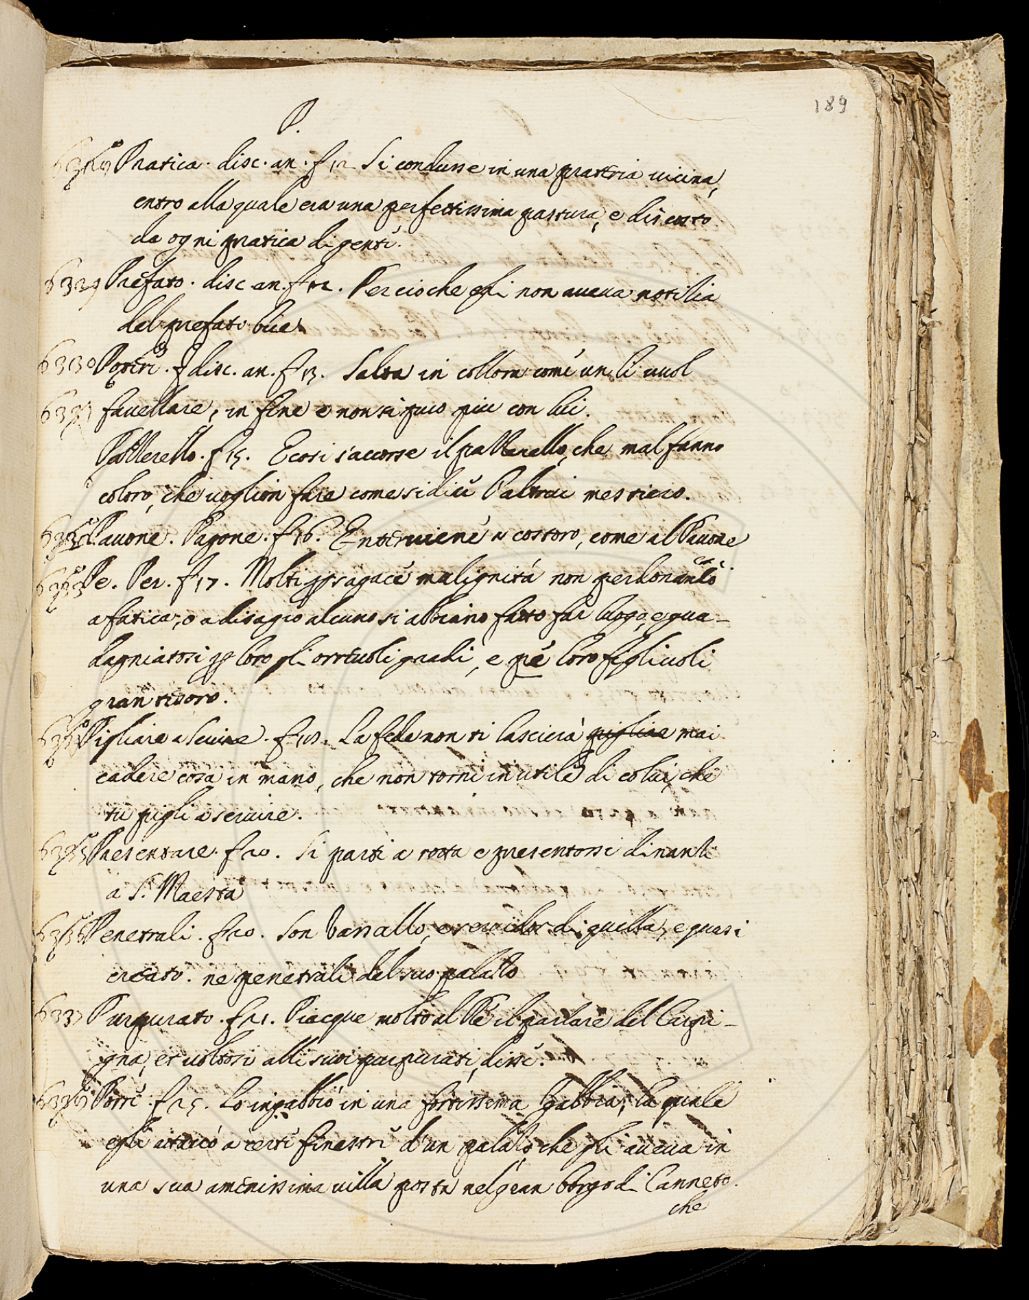 189
P.
Pratica. disc. an. f 12. Si condusse in una prateria vicina,
entro alla quale era una perfettissima pastura, e discosto
da ogni pratica di genti.
6329 Prefato. disc. an. f 12. Percioche egli non aveva notitia
del prefato bue.
6330 disc. an. f 13. Salta in collora come un li vuol
favellare, in fine e non si puo piu con lui.
f 15. E cosi s'accorse il che mal fanno
coloro, che voglion fare come si dice l'altrui mestiero.
Pavone. Pagone. f 16. Interviene a costoro, come al Pavone
Pe. Per. f 17. Molti malignità non perdonando
a fatica, o a disagio alcuno si abbiano fatto far luogo, e gua-
dagniatosi loro gli orrevoli gradi, e pe loro figliuoli
gran tesoro.
Pigliare a servire. La fede non ti lascierà pigliare mai
cadere cosa in mano, che non torni in utile di colui, che
tu pigli a servire.
Presentare. f 20. Si parti a rotta e presentossi dinanti
a S. Maestà
Penetrali. f 20. Son Vassallo, e servidor di quella, e quasi
creato ne penetrali del suo palatio
6337 Purpurato. f 21. Piacque molto al Re il parlare del Carpi-
gna, et voltosi alli suoi purpurati, disse.
f 25. Lo ingabbiò in una fortissima Gabbia, la quale
egli attaccò a certe finestre d'un palatio che gli aveva in
una sua amenissima villa posta nel gran borgo di Canneto.
che